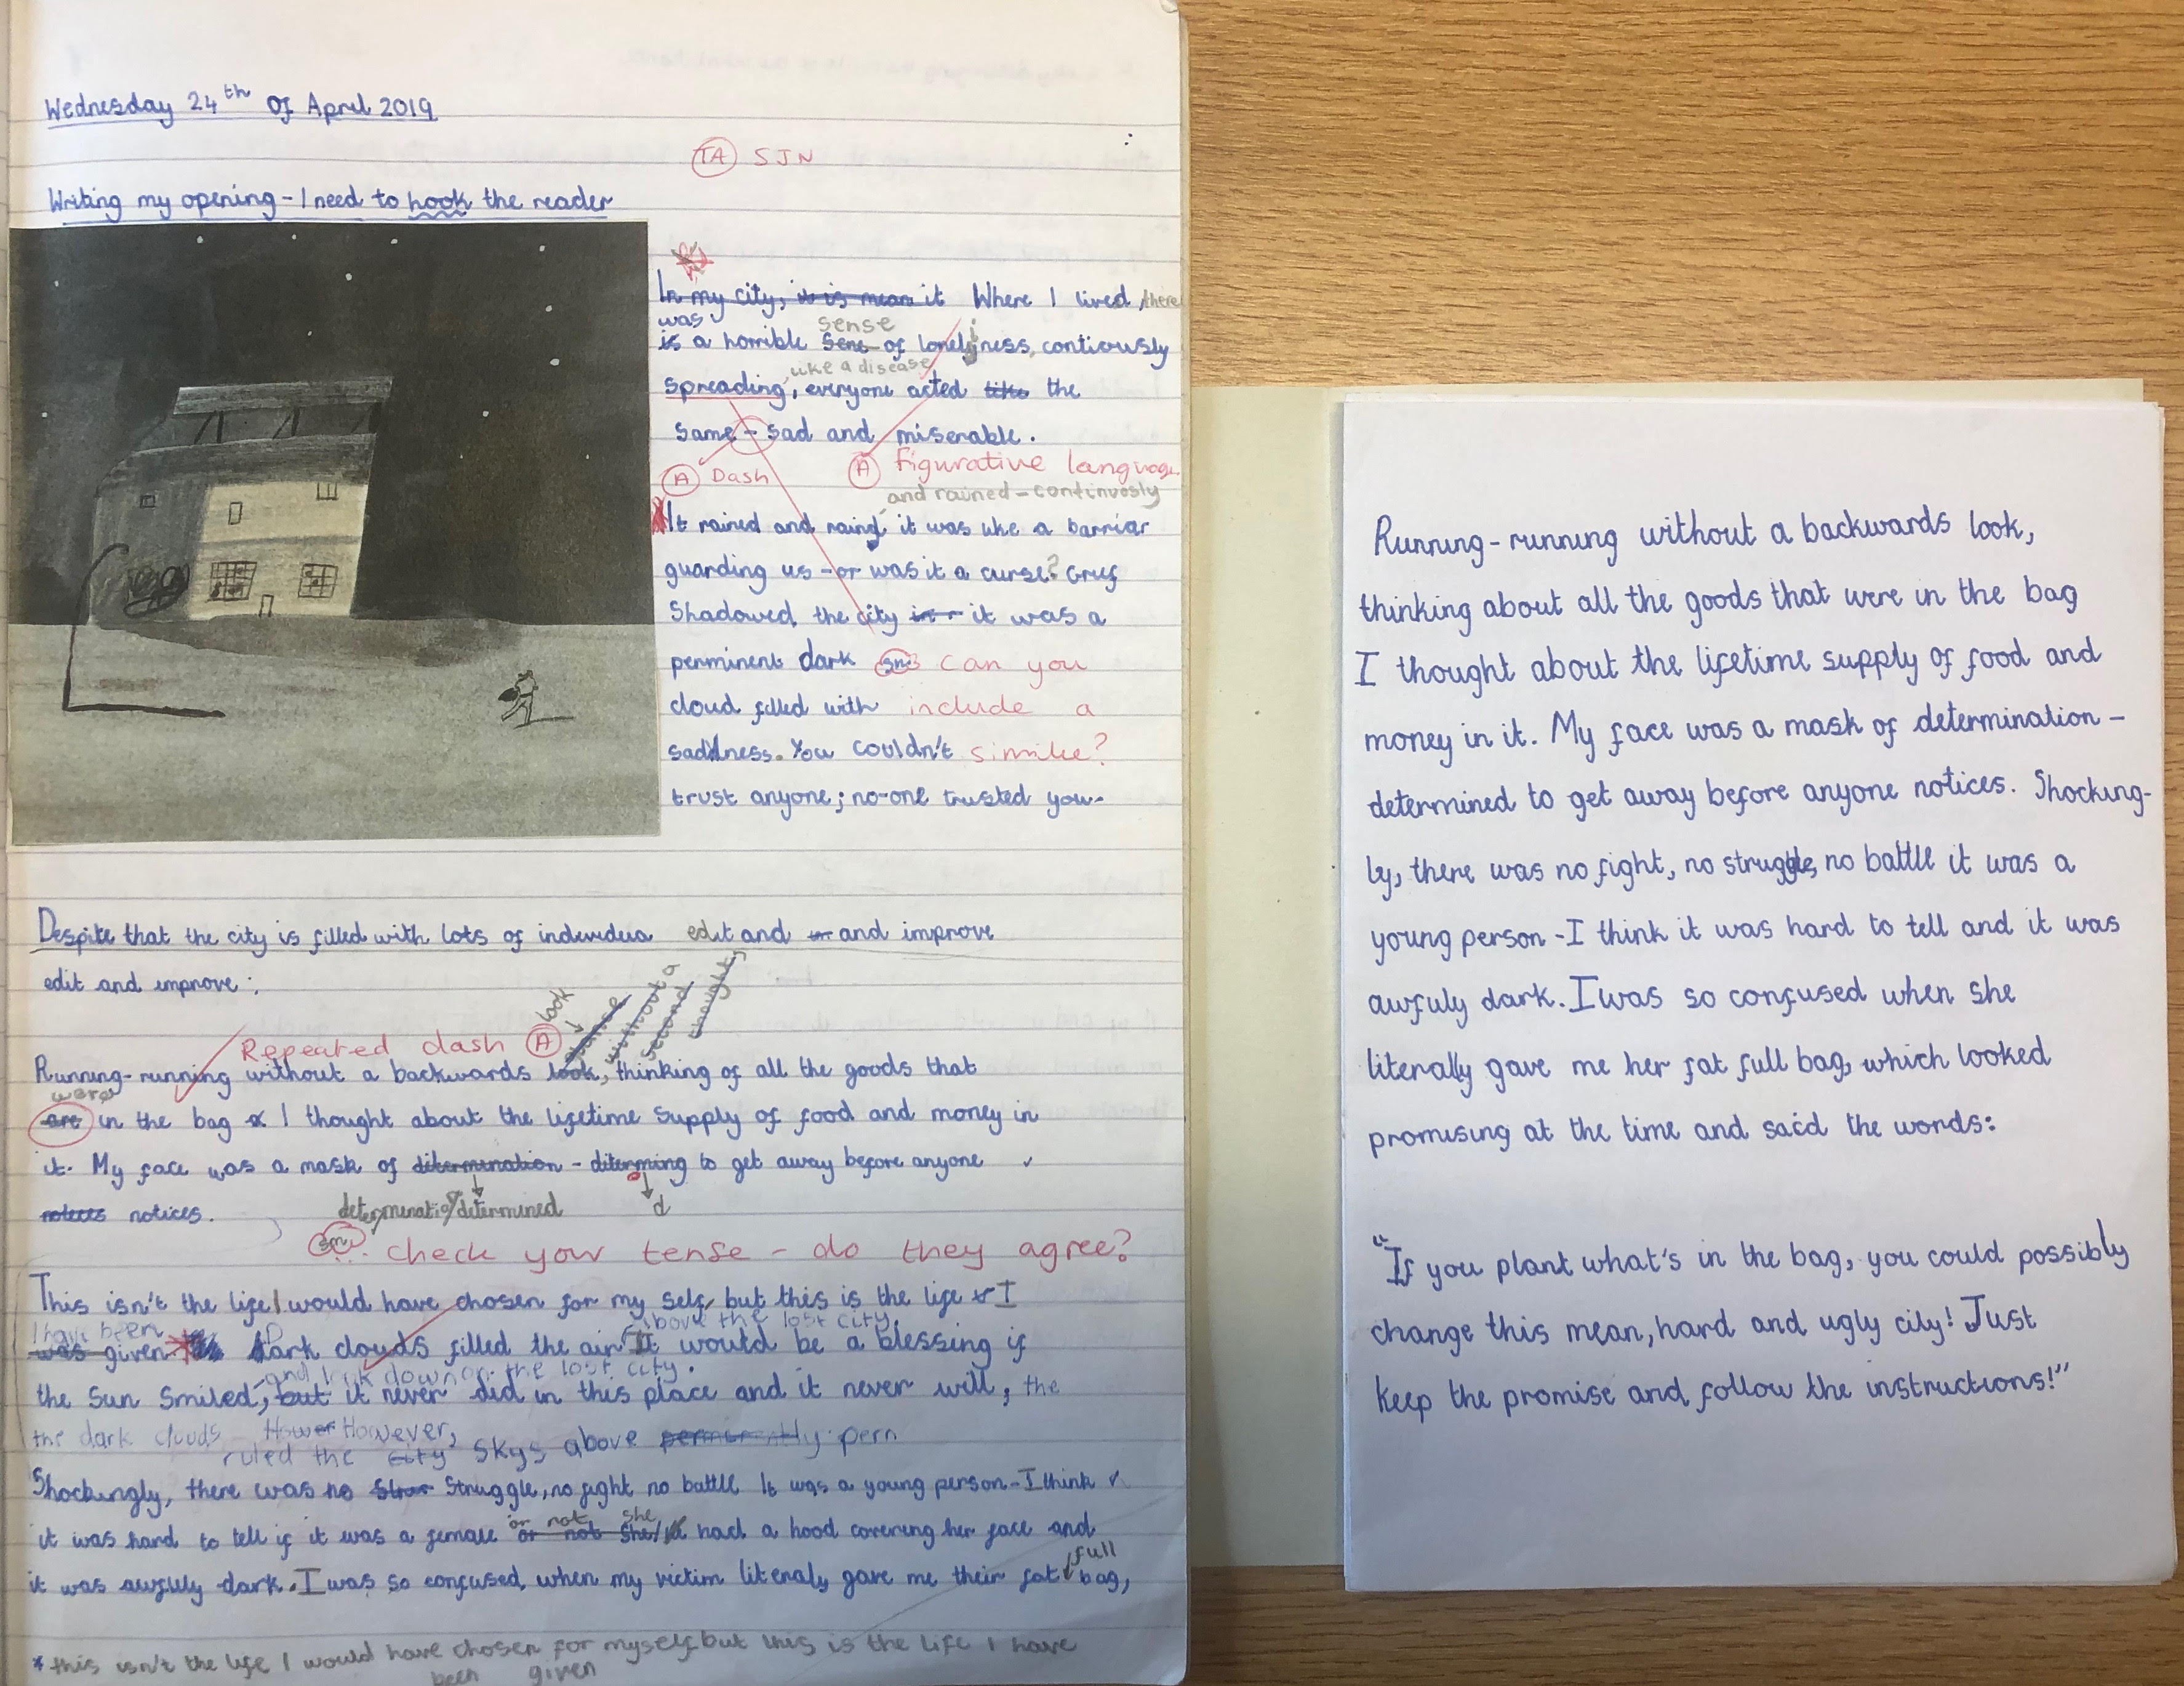 Wednesday 24th of April 2019
TA SJN
Writing my opening - I need to hook the reader
In my city, it is mean it Where I lived, there
was sense
is a horrible sens of lonelyness, contiously
i
like a disease
spreading, everyone acted like the
same - sad and miserable.
A Dash A figurative language
and rained - continuosly
It rained and raind it was like a barriar
guarding us - or was it a curse? Greif
Shadowed the city it was a
perminent dark sms can you
cloud filled with include a
saddness. You couldn't simile?
trust anyone; no-one trusted you.
Despite that the city is filled with lots of individua edit and and improve
edit and improve:
look without a second thought
Repeated dash A
Running - running without a backwards look, thinking of all the goods that
were
are in the bag I thought about the lifetime supply of food and money in
it. My face was a mask of ditermination - diterming to get away before anyone
notices.
determination/determined d
sms check your tense - do they agree?
This isn't the life I would have chosen for my self, but this is the life I
I have been above the lost city.
was given Dark clouds filled the air It would be a blessing if
and look down on the lost city.
the sun smiled, but it never did in this place and it never will, the
the dark clouds However,
ruled the city skys above permenently pern
Shockingly, there was no struggle, no fight no battle It was a young person - I think
or not she
it was hard to tell if it was a female or not she had a hood covering her face and
full
it was awfuly dark. I was so confused when my victim literaly gave me their fat bag,
* this isn't the life I would have chosen for myself but this is the life I have
been given
Running - running without a backwards look,
thinking about all the goods that were in the bag
I thought about the lifetime supply of food and
money in it. My face was a mask of determination -
determined to get away before anyone notices. Shocking-
ly, there was no fight, no struggle, no battle it was a
young person - I think it was hard to tell and it was
awfuly dark. I was so confused when she
literally gave me her fat full bag, which looked
promising at the time and said the words:
"If you plant what's in the bag, you could possibly
change this mean, hard and ugly city! Just
keep the promise and follow the instructions!"